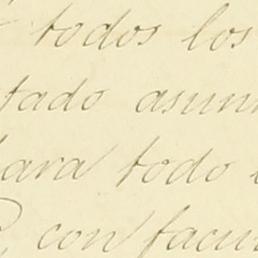 todos los
tado asun
para todo
con facul